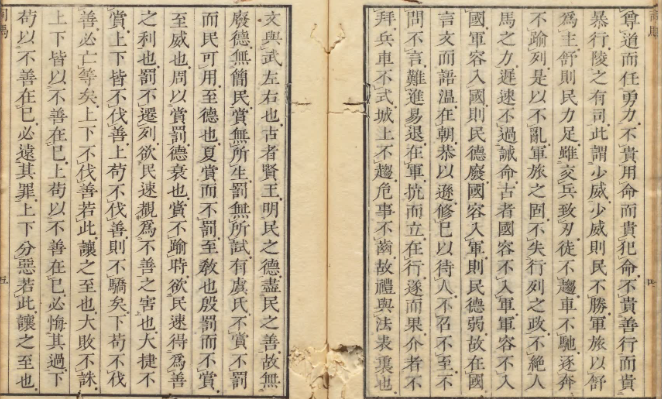 尊道而任勇力不貴用命而貴犯命不貴善行而貴
暴行陵之有司此謂少威少威則民不勝軍旅以舒
為主舒則民力足雖交兵致刃徒不趨車不馳逐奔
不踰列是以不亂軍旅之固不失行列之政不絕人
馬之力遲速不過誡命古者國容不入軍軍容不入
國軍容入國則民德廢國容入軍則民德弱故在國
言文而語溫在朝恭以遜修己以待人不召不至不
問不言難進易退在軍抗而立在行遂而果介者不
拜兵車不式城上不趨危事不齒故禮與法表裏也
文與武左右也古者賢王明民之德盡民之善故無
廢德無簡民賞無所生罰無所試有虞氏不賞不罰
而民可用至德也夏賞而不罰至教也殷罰而不賞
至威也周以賞罰德衰也賞不踰時欲民速得為善
之利也罰不遷列欲民速覩為不善之害也大捷不
賞上下皆不伐善上苟不伐善則不驕矣下苟不伐
善必亡等矣上下不伐善若此讓之至也大敗不誅
上下皆以不善在己上苟以不善在己必悔其過下
苟以不善在己必遠其罪上下分惡若此讓之至也